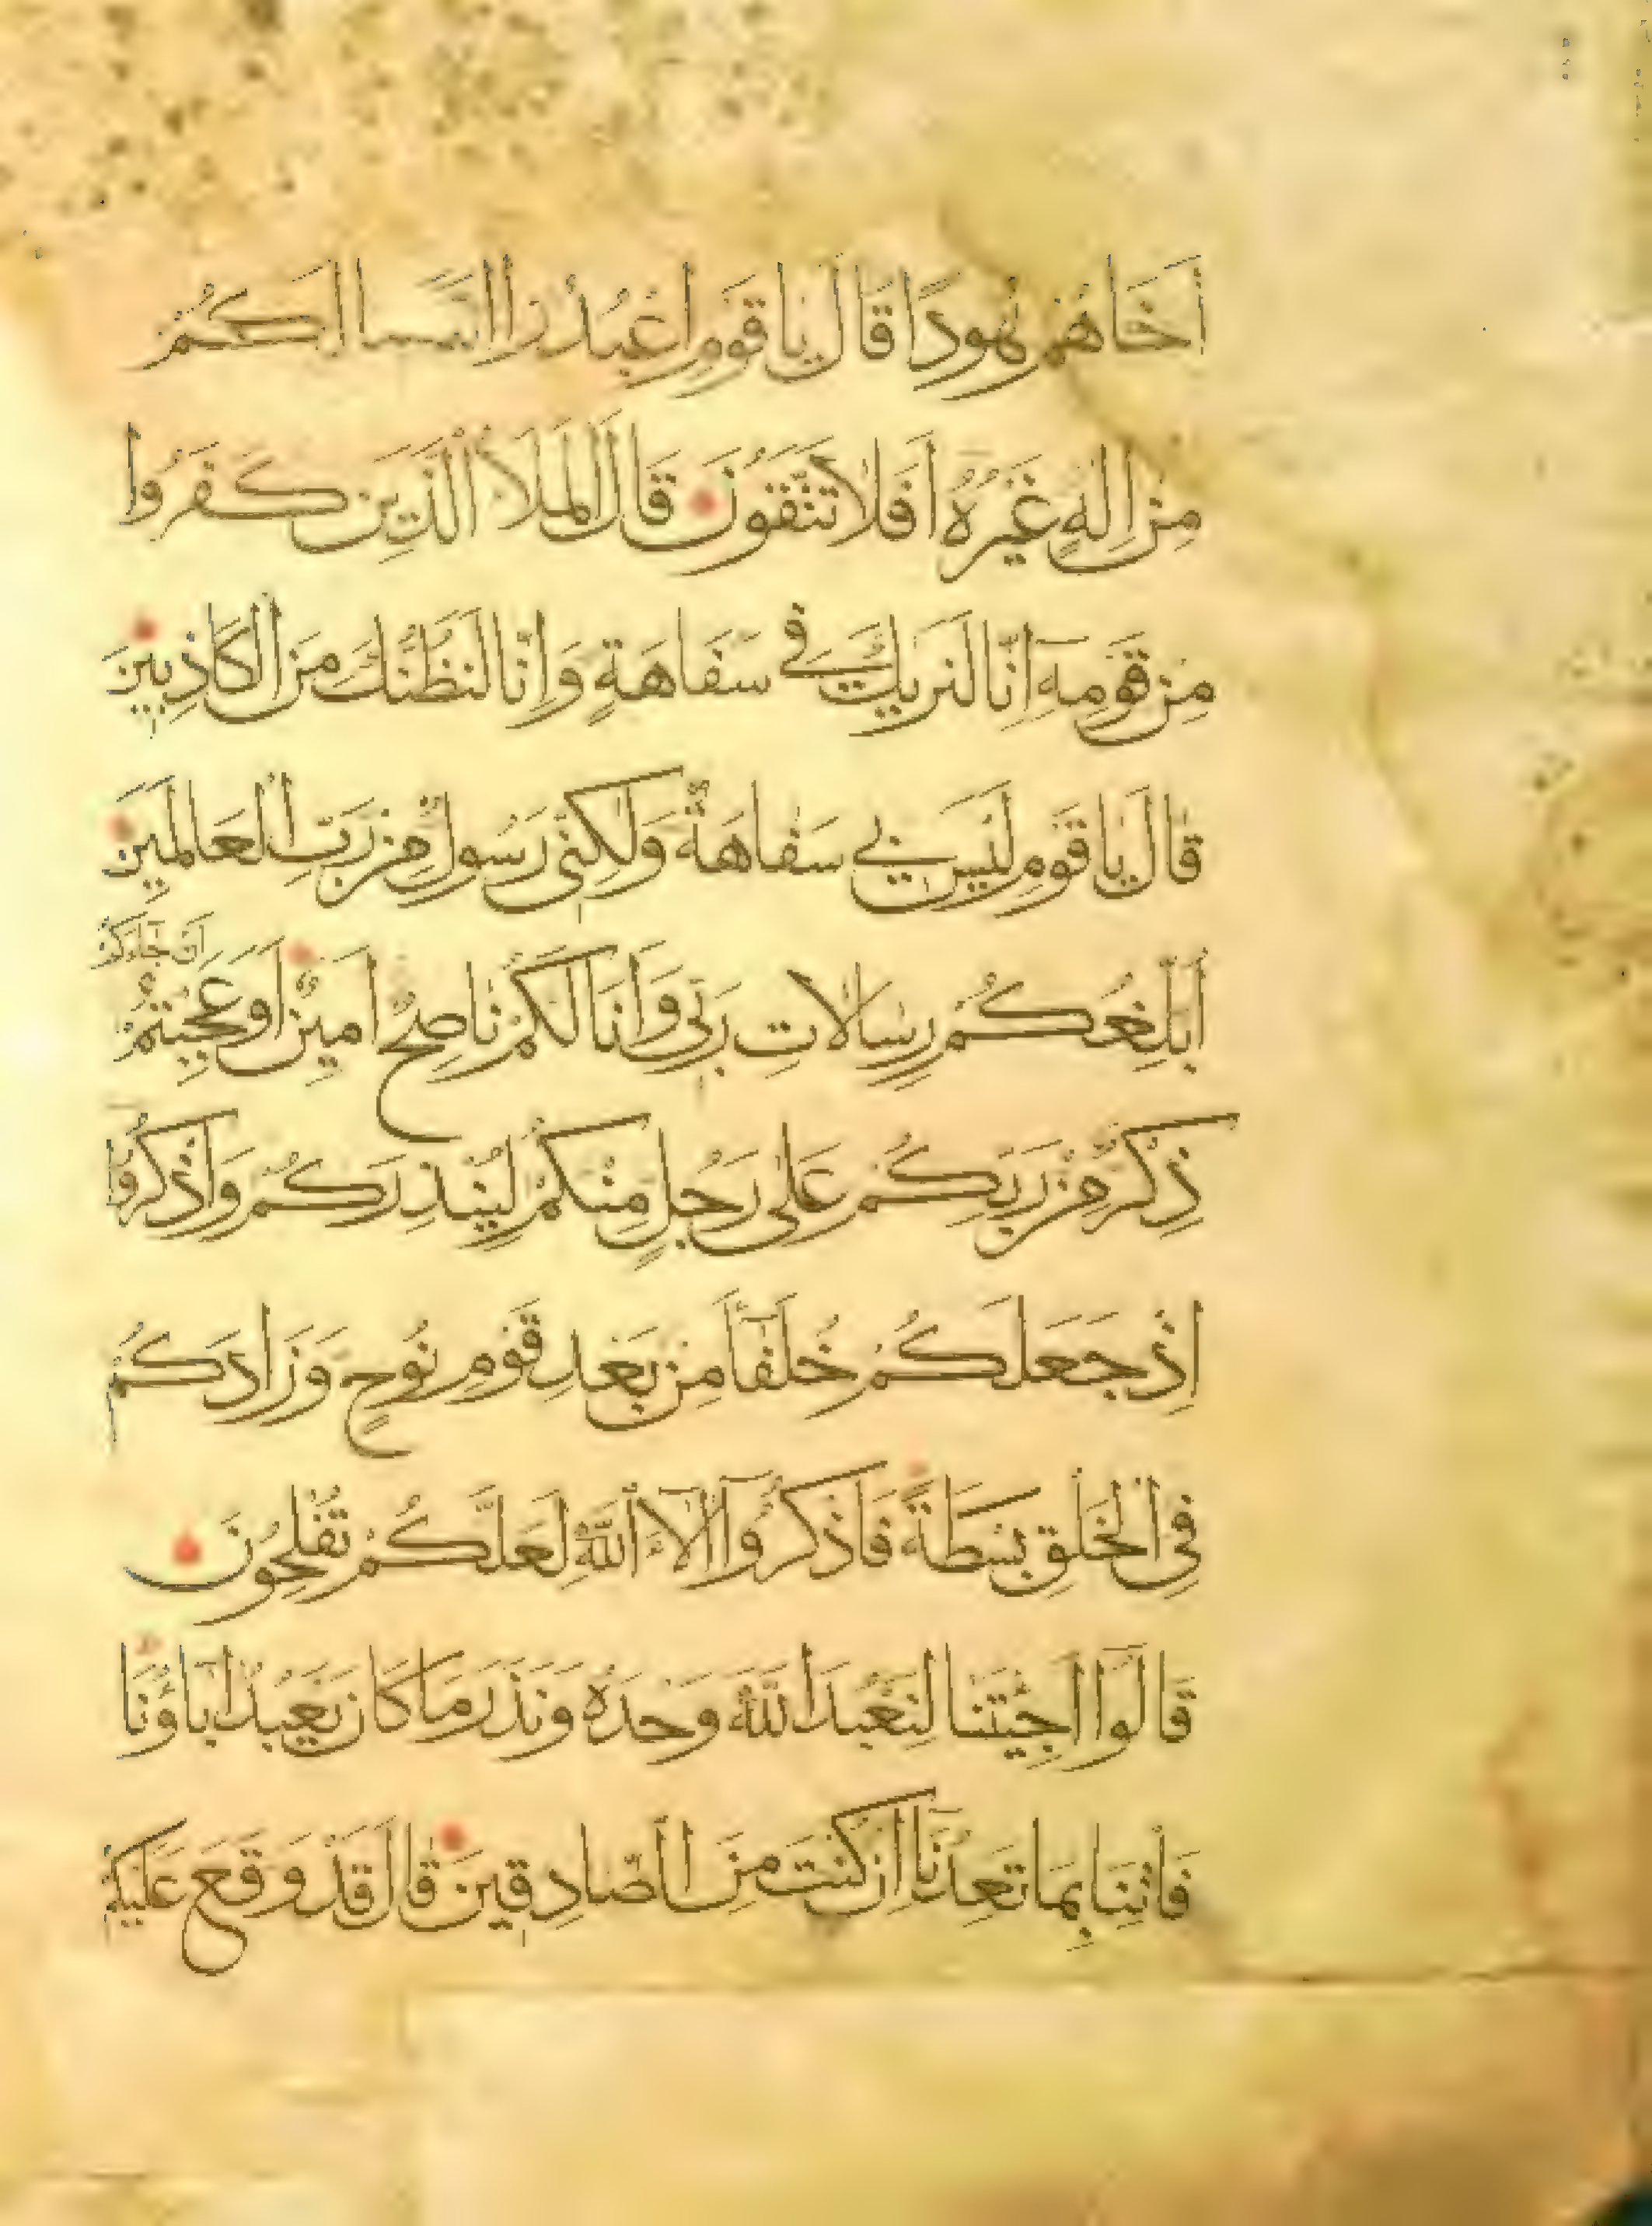 أَخَاهُمْ هُودًا قَالَ يَا قَوْمِ اعْبُدُوا اللَّهَ مَا لَكُمْ
مِنْ اِلَهٍ غَيْرُهُ اَفَلَا تَتَّقُونَ قَالَ الْمَلَأُ الَّذِينَ كَفَرُوا
مِنْ قَوْمِهِٓ اِنَّا لَنَرَيكَ فِي سَفَاهَةٍ وَاِنَّا لَنَظُنُّكَ مِنَ الْكَاذِبِينَ
قَالَ يَا قَوْمِ لَيْسَ بِي سَفَاهَةٌ وَلٰكِنِّي رَسُولٌ مِنْ رَبِّ الْعَالَمِينَ
اُبَلِّغُكُمْ رِسَالَاتِ رَبِّي وَاَنَا لَكُمْ نَاصِحٌ اَمِينٌ اَوَعَجِبْتُمْ اَنْ جَاءَكُمْ
ذِكْرٌ مِنْ رَبِّكُمْ عَلٰى رَجُلٍ مِنْكُمْ لِيُنْذِرَكُمْ وَاذْكُرُوا
اِذْ جَعَلَكُمْ خُلَفَآءَ مِنْ بَعْدِ قَوْمِ نُوحٍ وَزَادَكُمْ
فِي الْخَلْقِ بَسْطَةً فَاذْكُرُوٓا اٰلَآءَ اللَّهِ لَعَلَّكُمْ تُفْلِحُونَ
قَالُوٓا اَجِئْتَنَا لِنَعْبُدَ اللَّهَ وَحْدَهُ وَنَذَرَ مَا كَانَ يَعْبُدُ اٰبَاؤُنَا
فَأْتِنَا بِمَا تَعِدُنَٓا اِنْ كُنْتَ مِنَ الصَّادِقِينَ قَالَ قَدْ وَقَعَ عَلَيْكُمْ